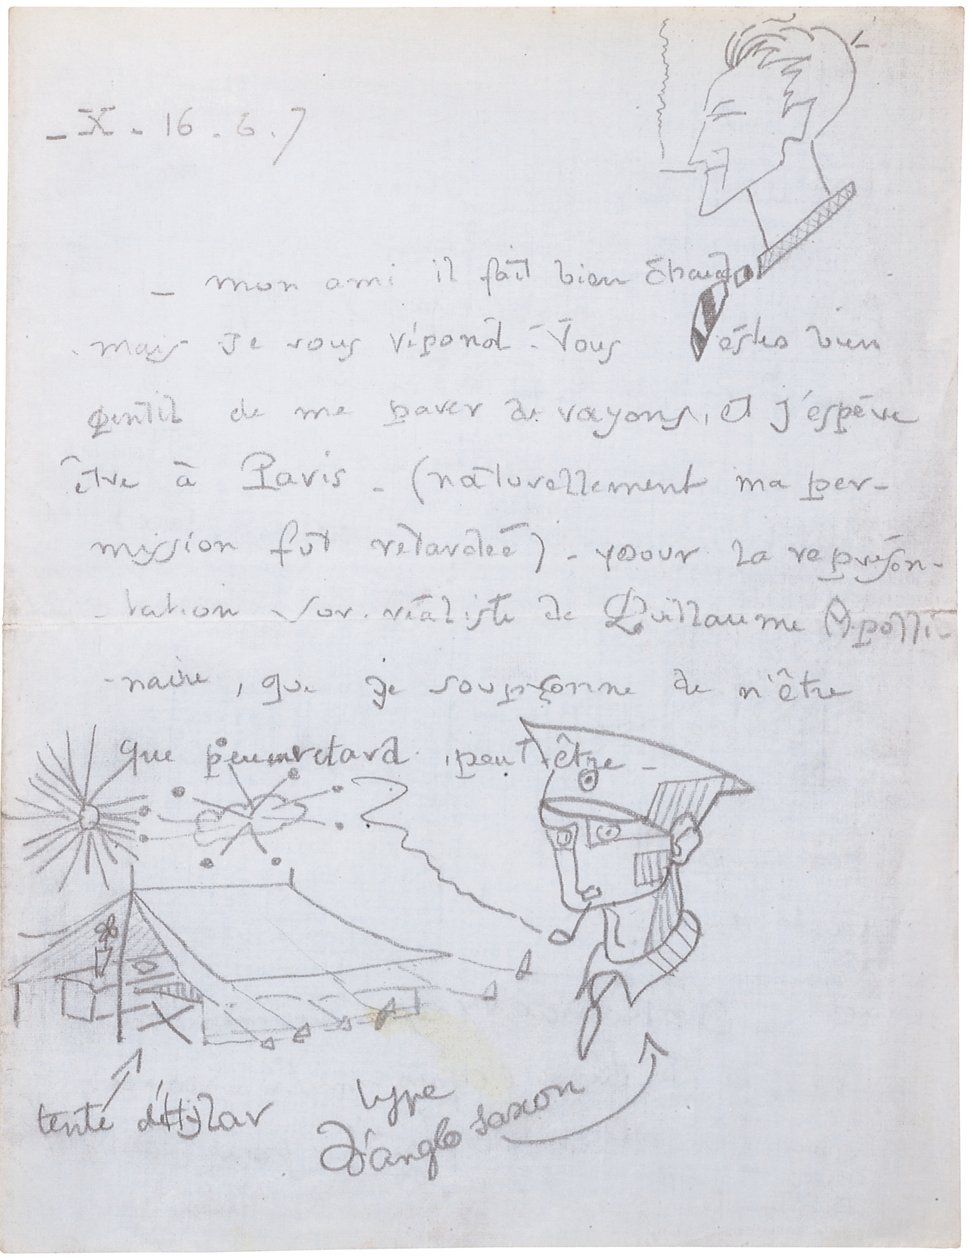 - X. 16. 6. 7
- mon ami il fait bien chaud
mais je vous répond - Vous êstes bien
gentil de me parer de rayons, et j'espère
être à Paris - (naturellement ma per-
mission fût retardée) - pour la représen-
- tation sur-réaliste de Guillaume Apolli-
- naire, que je soupçonne de n'être
que peu en retard peut être -
tente
type
d'anglo saxon